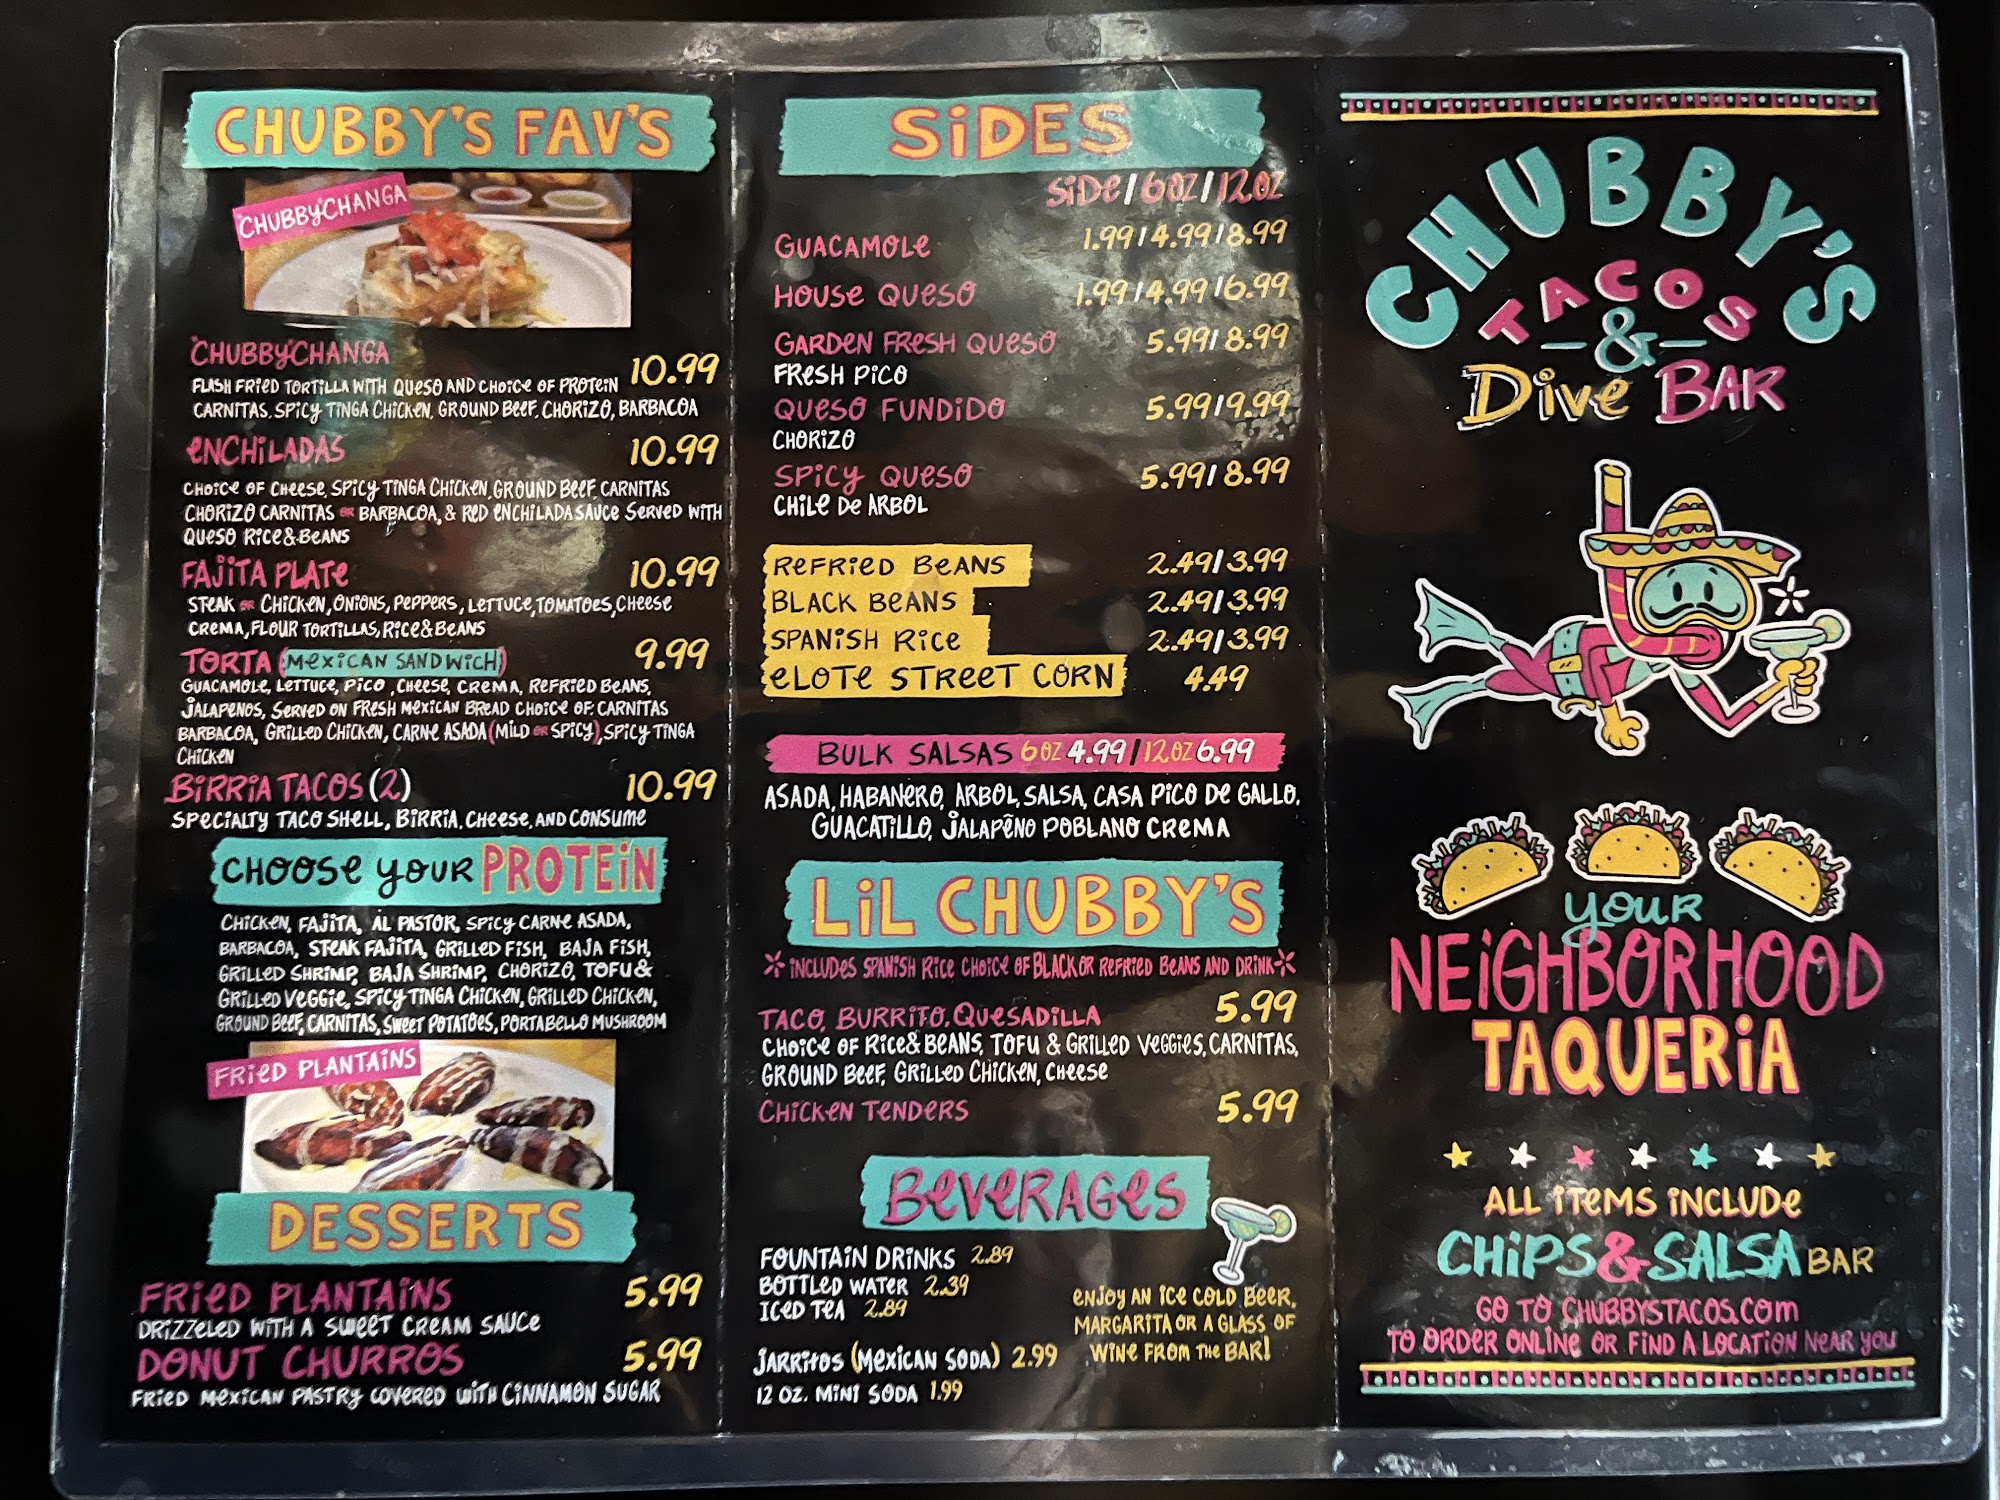 CHUBBY'S FAV'S
"CHUBBY"CHANGA
"CHUBBY"CHANGA
10.99
FLASH FRIED TORTILLA WITH QUESO AND CHOICE OF PROTEIN
CARNITAS, SPICY TINGA CHICKEN, GROUND BEEF, CHORIZO, BARBACOA
ENCHILADAS 10.99
CHOICE OF CHEESE, SPICY TINGA CHICKEN, GROUND BEEF, CARNITAS
CHORIZO CARNITAS OR BARBACOA, & RED ENCHILADA SAUCE SERVED WITH
QUESO RICE & BEANS
FAJITA PLATE 10.99
STEAK OR CHICKEN, ONIONS, PEPPERS, LETTUCE, TOMATOES, CHEESE
CREMA, FLOUR TORTILLAS, RICE & BEANS
TORTA (MEXICAN SANDWICH) 9.99
GUACAMOLE, LETTUCE, PICO, CHEESE, CREMA, REFRIED BEANS,
JALAPENOS, SERVED ON FRESH MEXICAN BREAD CHOICE OF: CARNITAS
BARBACOA, GRILLED CHICKEN, CARNE ASADA (MILD OR SPICY), SPICY TINGA
CHICKEN
BIRRIA TACOS (2) 10.99
SPECIALTY TACO SHELL, BIRRIA, CHEESE, AND CONSUME
CHOOSE YOUR PROTEIN
CHICKEN, FAJITA, AL PASTOR, SPICY CARNE ASADA,
BARBACOA, STEAK FAJITA, GRILLED FISH, BAJA FISH,
GRILLED SHRIMP, BAJA SHRIMP, CHORIZO, TOFU &
GRILLED VEGGIE, SPICY TINGA CHICKEN, GRILLED CHICKEN,
GROUND BEEF, CARNITAS, SWEET POTATOES, PORTABELLO MUSHROOM
FRIED PLANTAINS
DESSERTS
FRIED PLANTAINS 5.99
DRIZZELED WITH A SWEET CREAM SAUCE
DONUT CHURROS 5.99
FRIED MEXICAN PASTRY COVERED WITH CINNAMON SUGAR
SIDES
SIDE/6OZ/12OZ
GUACAMOLE 1.99/4.99/8.99
HOUSE QUESO 1.99/4.99/6.99
GARDEN FRESH QUESO 5.99/8.99
FRESH PICO
QUESO FUNDIDO 5.99/9.99
CHORIZO
SPICY QUESO 5.99/8.99
CHILE DE ARBOL
REFRIED BEANS 2.49/3.99
BLACK BEANS 2.49/3.99
SPANISH RICE 2.49/3.99
ELOTE STREET CORN 4.49
BULK SALSAS 6OZ 4.99/12OZ 6.99
ASADA, HABANERO, ARBOL, SALSA, CASA PICO DE GALLO,
GUACATILLO, JALAPEÑO POBLANO CREMA
LIL CHUBBY'S
*INCLUDES SPANISH RICE CHOICE OF BLACK OR REFRIED BEANS AND DRINK*
TACO, BURRITO, QUESADILLA 5.99
CHOICE OF RICE & BEANS, TOFU & GRILLED VEGGIES, CARNITAS,
GROUND BEEF, GRILLED CHICKEN, CHEESE
CHICKEN TENDERS 5.99
BEVERAGES
FOUNTAIN DRINKS 2.89
BOTTLED WATER 2.39
ICED TEA 2.89
JARRITOS (MEXICAN SODA) 2.99
12 OZ. MINI SODA 1.99
ENJOY AN ICE COLD BEER,
MARGARITA OR A GLASS OF
WINE FROM THE BAR!
CHUBBY'S
TACOS
&
DIVE BAR
YOUR
NEIGHBORHOOD
TAQUERIA
ALL ITEMS INCLUDE
CHIPS & SALSA BAR
GO TO CHUBBYSTACOS.COM
TO ORDER ONLINE OR FIND A LOCATION NEAR YOU